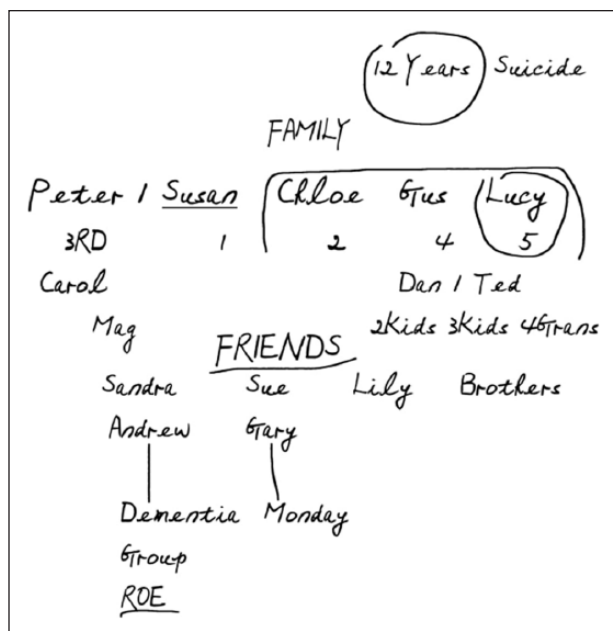 12 Years Suicide
FAMILY
Peter / Susan Chloe Gus Lucy
3RD 1 2 4 5
Carol Dan / Ted
Mag 2Kids 3Kids 4Gtrans
FRIENDS
Sandra Sue Lily Brothers
Andrew Gary
Dementia Monday
Group
ROE